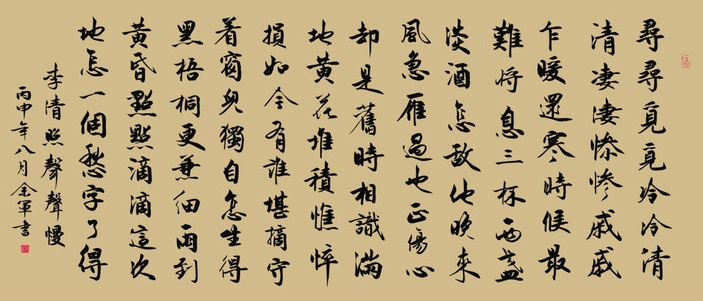 尋尋覓覓冷冷清
清淒淒慘慘戚戚
乍暖還寒時候最
難將息三杯兩盞
淡酒怎敵他晚來
風急雁過也正傷心
却是舊時相識滿
地黃花堆積憔悴
損如今有誰堪摘守
着窗兒獨自怎生得
黑梧桐更兼細雨到
黃昏點點滴滴這次
地怎一個愁字了得
李清照聲聲慢
丙申年八月金軍書